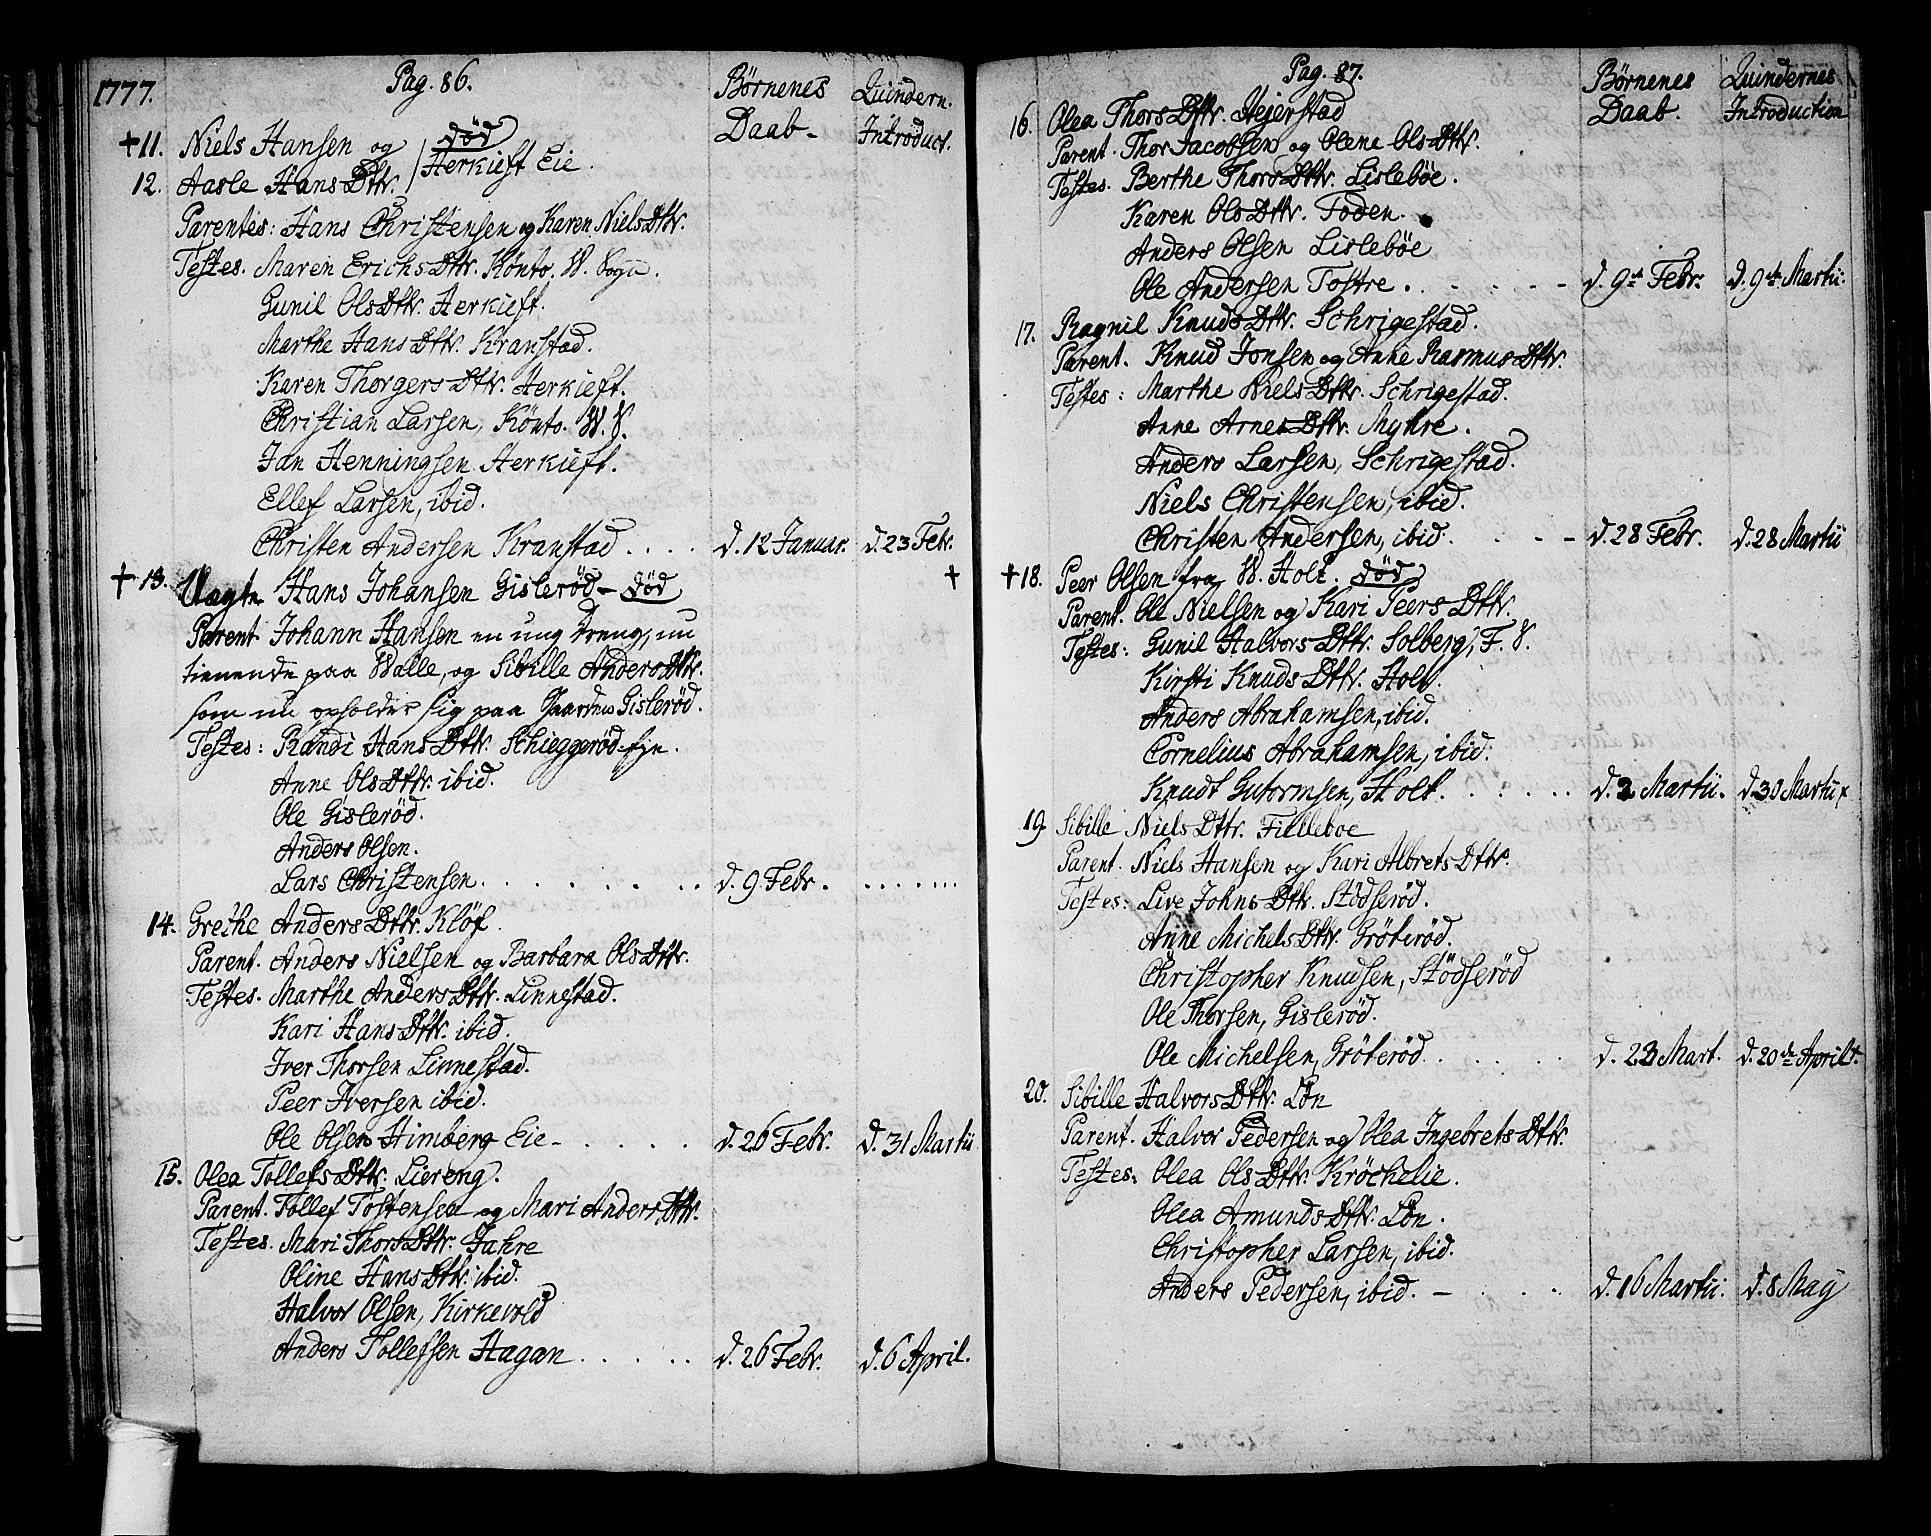 1777.
Pag. 86.
Børnenes Daab-
Quindern. Introduct.
†11. Niels Hansen og
død
12. Aasle Hans Dttr. Herkieft Eie.
Parentes: Hans Christensen og Karen Niels Dttr.
Testes. Maren Erichs Dttr. Könto. W. Sogn.
Gunil Ols Dttr. Herkieft.
Marthe Hans Dttr. Kranstad.
Karen Thorgers Dttr. Herkieft.
Christian Larsen, Könto. W. S.
Jan Henningsen Herkieft.
Ellef Larsen, ibid.
Christen Andersen Kranstad.... d. 12 Januar. d. 23 Febr.
† 13. Uægte Hans Johansen Gislerød- død †
Parent. Johann Hansen en ung Dreng, nu
tienende paa Walle, og Sibille Anders Dttr.
som nu opholder sig paa Gaarden Gislerød.
Testes: Randi Hans Dttr. Schieggerød-Eje.
Anne Ols Dttr. ibid.
Ole Gislerød.
Anders Olsen.
Lars Christensen. . . . . . . . d. 9 Febr. . .......
14. Grethe Anders Dttr. Kløf.
Parent. Anders Nielsen og Barbara Ols Dttr.
Testes. Marthe Anders Dttr. Linnestad.
Kari Hans Dttr. ibid.
Iver Thorsen Linnestad.
Peer Iversen ibid.
Ole Olsen Himberg Eie- . . . . . d. 26 Febr. d. 31 Martii
15. Olea Tollefs Dttr. Liereng.
Parent. Tollef Tostensen og Mari Anders Dttr.
Testes. Mari Thors Dttr. Jahre
Oline Hans Dttr. ibid.
Halvor Olsen, Kirkevold
Anders Tollefsen Hagan . . . . . d. 26 Febr. d. 6 April.
Pag. 87.
Børnenes Daab.
Quindernes Introduction
16. Olea Thors Dttr. Hejerstad
Parent. Thor Jacobsen og Olene Ols Dttr.
Testes. Berthe Thors Dttr. Lislebøe.
Karen Ols Dttr. Foden.
Anders Olsen Lislebøe
Ole Andersen Tostre. . . . . . - d. 9de Febr. d. 9de Martii.
17. Ragnil Knuds Dttr. Schrigestad.
Parent. Knud Jonsen og Anne Rasmus Dttr.
Testes: Marthe Niels Dttr. Schrigestad.
Anne Arnes Dttr. Myhre.
Anders Larsen, Schrigestad.
Niels Christensen, ibid.
Christen Andersen, ibid. . . - - d. 28 Febr. d. 28 Martii
†18. Peer Olsen fra W. Holt. død
Parent. Ole Nielsen og Kari Peers Dttr.
Testes: Gunil Halvors Dttr. Solberg, F. S.
Kirsti Knuds Dttr. Holt.
Anders Abrahamsen, ibid.
Cornelius Abrahamsen, ibid.
Knudt Gutormsen, Holt. . . . . . . d. 2 Martii. d. 30 Martii
19. Sibille Niels Dttr. Filleboe
Parent. Niels Hansen og Kari Albrets Dttr.
Testes: Live Johns Dttr. Stödserød.
Anne Michels Dttr. Gröterød.
Christopher Knudsen, Stödserød
Ole Thorsen, Gislerød.
Ole Michelsen, Gröterød. . . . . . d. 23 Mart. d. 20de April.
20. Sibille Halvors Dttr. Lön
Parent. Halvor Pedersen og Olea Ingebrets Dttr.
Testes. Olea Ols Dttr. Kröchelie.
Olea Amunds Dttr. Lön.
Christopher Larsen, ibid.
Anders Pedersen, ibid. - . . . . d. 16 Martii. d. 8 Maij